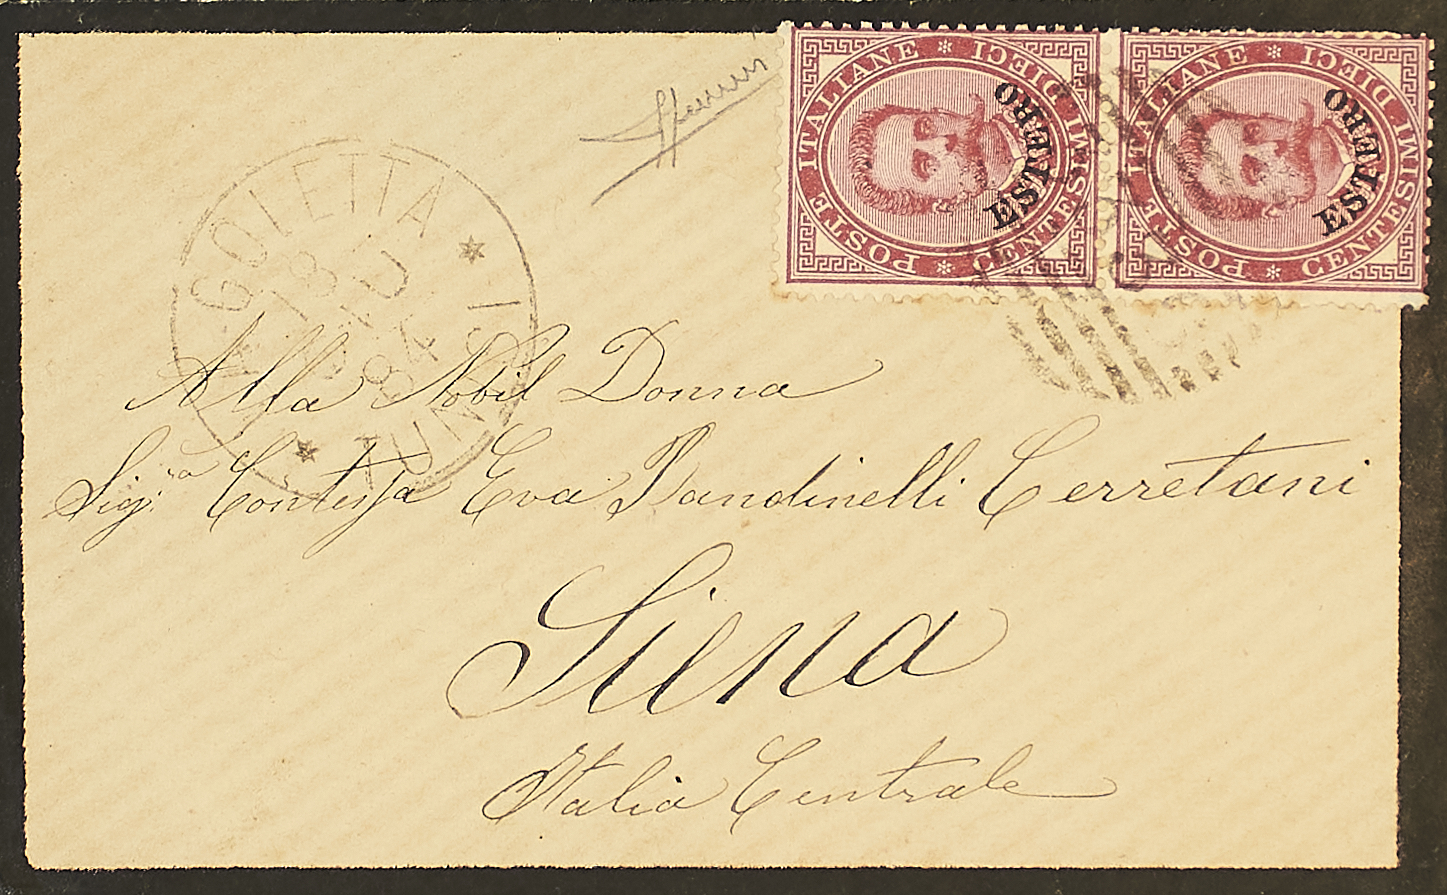 POSTE ITALIANE * DIECI CENTESIMI *
ESTERO
POSTE ITALIANE * DIECI CENTESIMI *
ESTERO
GOLETTA
TUNISI
84
Alla Nobil Donna
Sig.ra Contessa Eva Bandinelli Cerretani
Siena
Italia Centrale